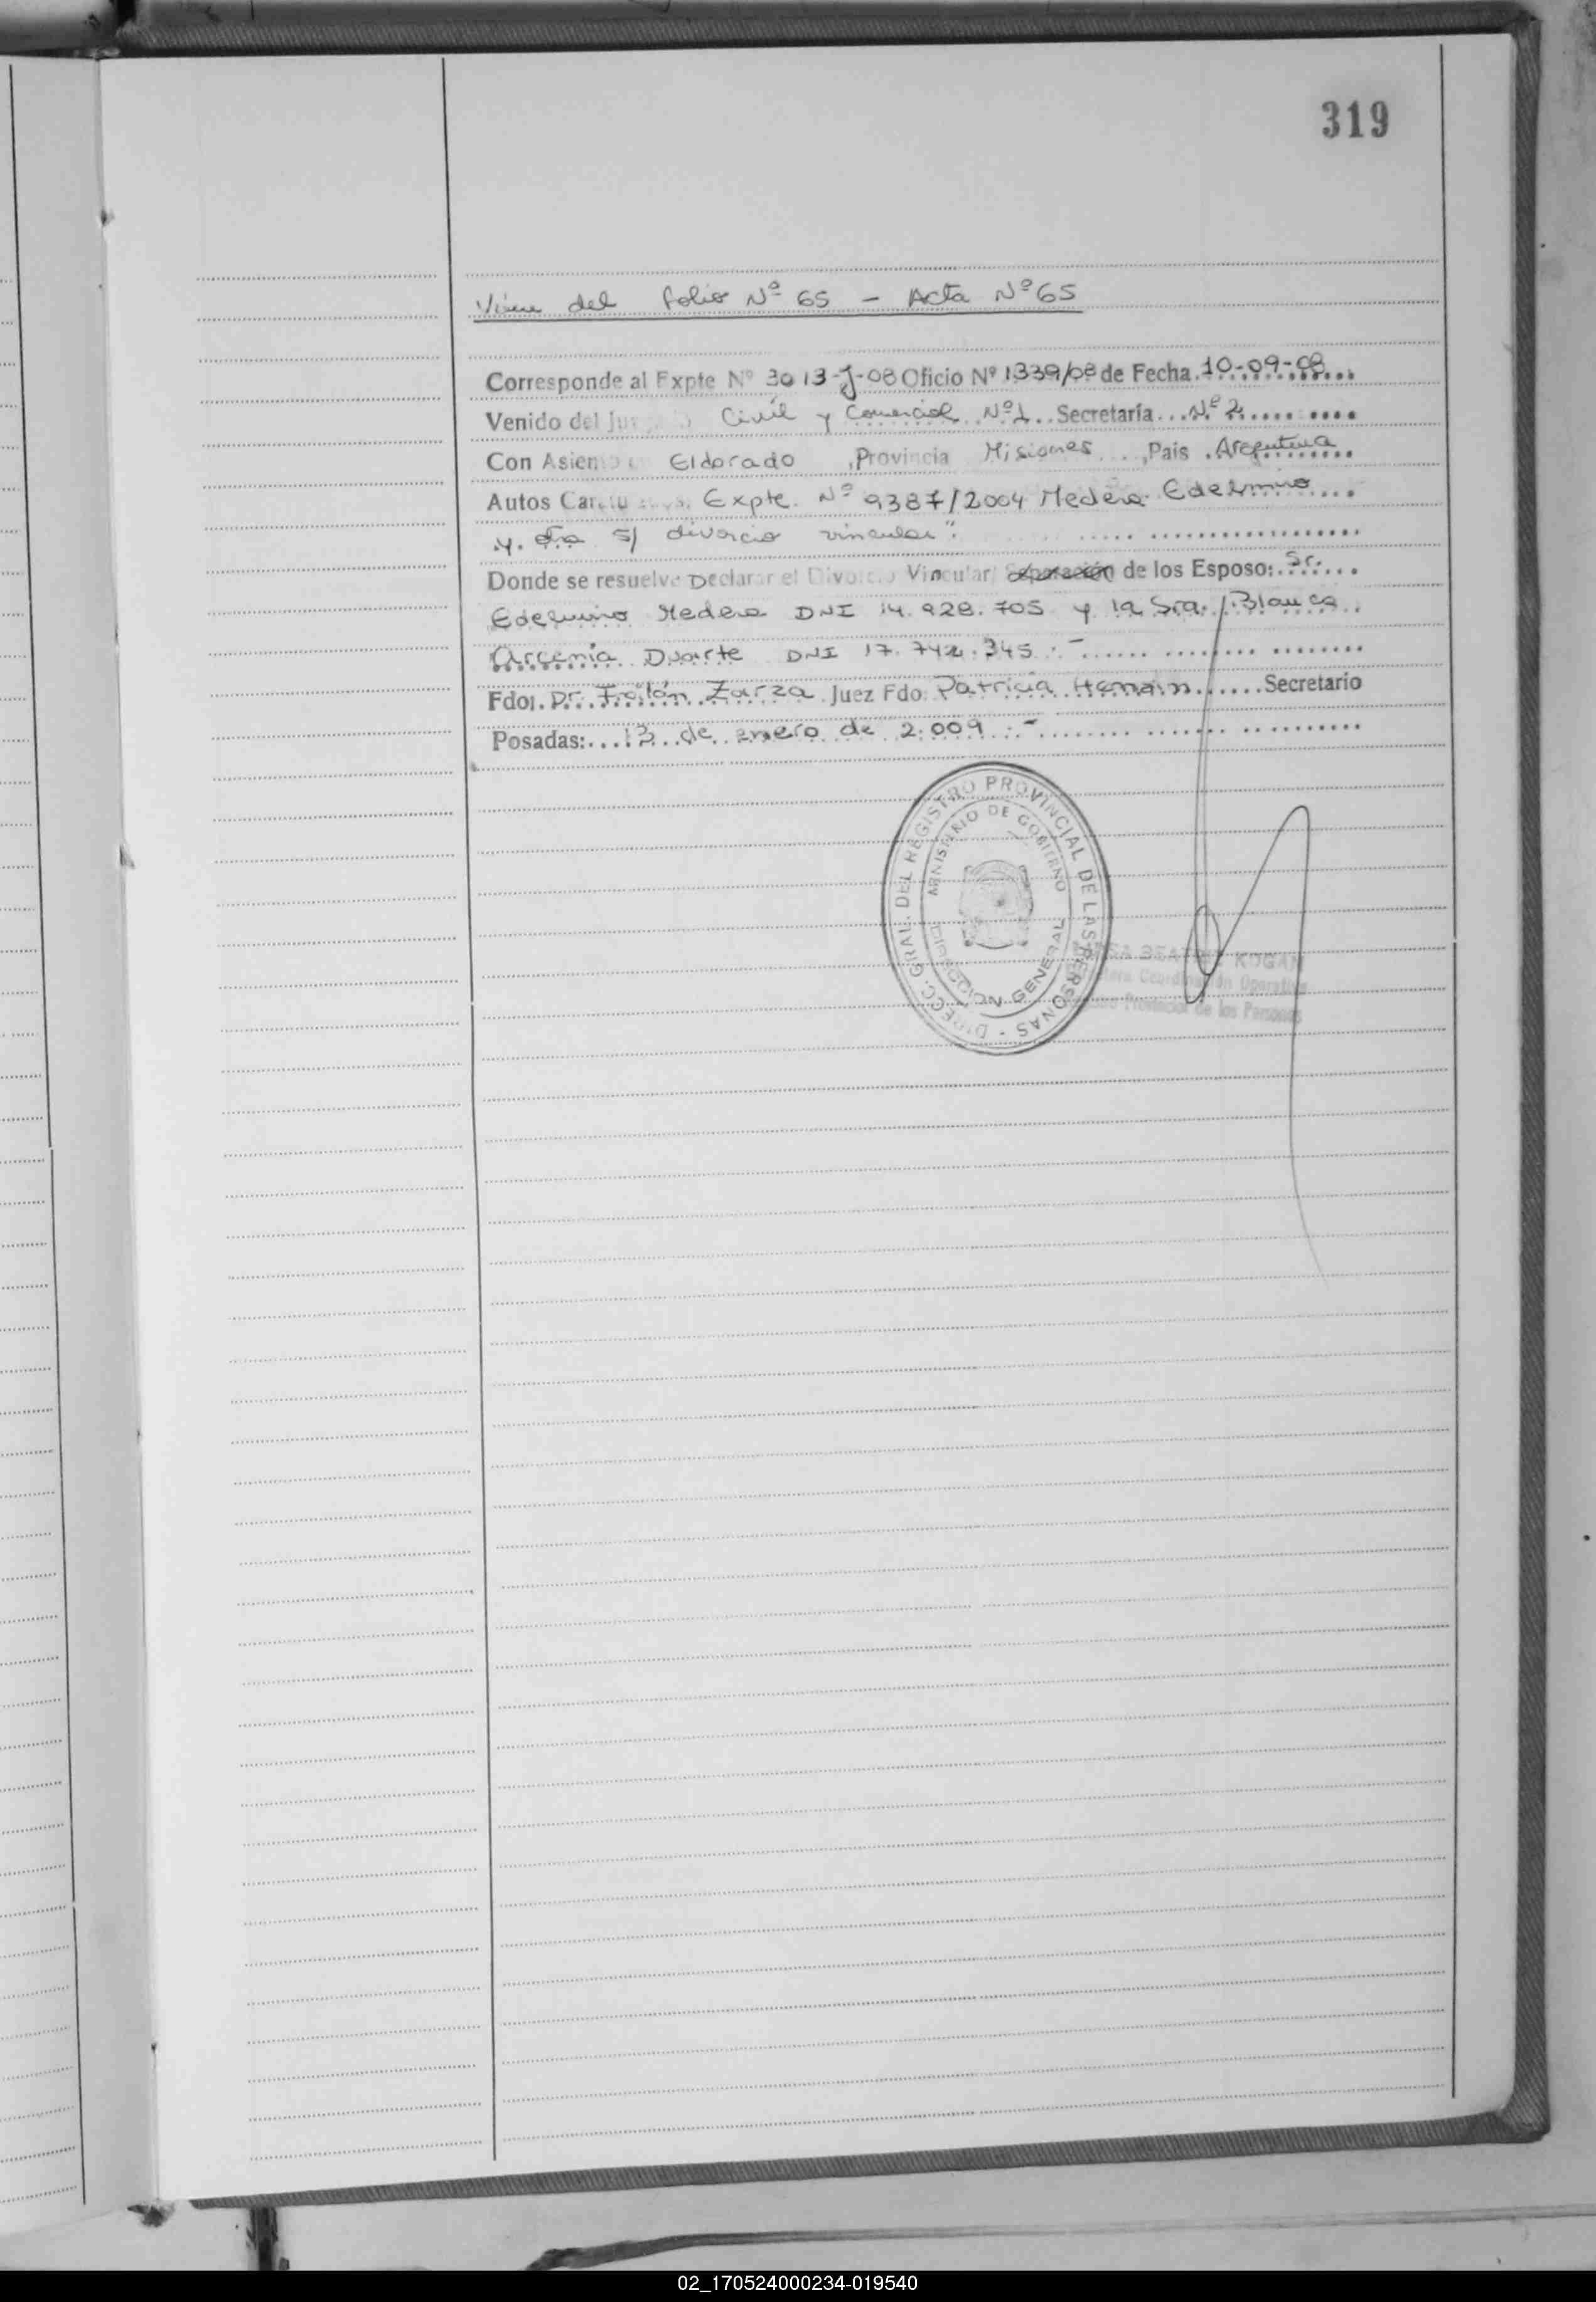 319
Viene del folio Nº 65 - Acta Nº 65
Corresponde al Expte Nº 3013-J-08 Oficio Nº 1339/08 de Fecha 10-09-08
Venido del Civil y Comercial Nº 1 Secretaría Nº 2
Con Asiento Eldorado, Provincia Misiones, País Argentina
Autos Expte. Nº 9387/2004 Medera Edelmiro
y otra s/ divorcio vincular".
Donde se resuelve Declarar el Divorcio Vincular Separación de los Esposo: Sr.
Edelmiro Medera DNI 14.928.705 y la Sra. Blanca
Arcenia Duarte DNI 17.742.345.-
Fdo. Dr. Froilán Zarza Juez Fdo. Patricia Secretario
Posadas: 13 de enero de 2.009.-
DIRECC. GRAL. DEL REGISTRO PROVINCIAL DE LAS PERSONAS -
MINISTERIO DE GOBIERNO
DIRECCION GENERAL
BEATRIZ KOGAN
Coordinación Operativa
Provincial de las Personas
02_170524000234-019540